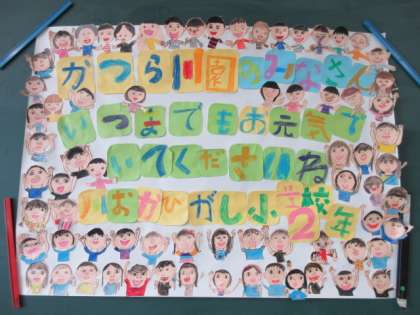 かつら川園のみなさん
いつまでもお元気で
いてくださいね
川おかひがし小学校2年